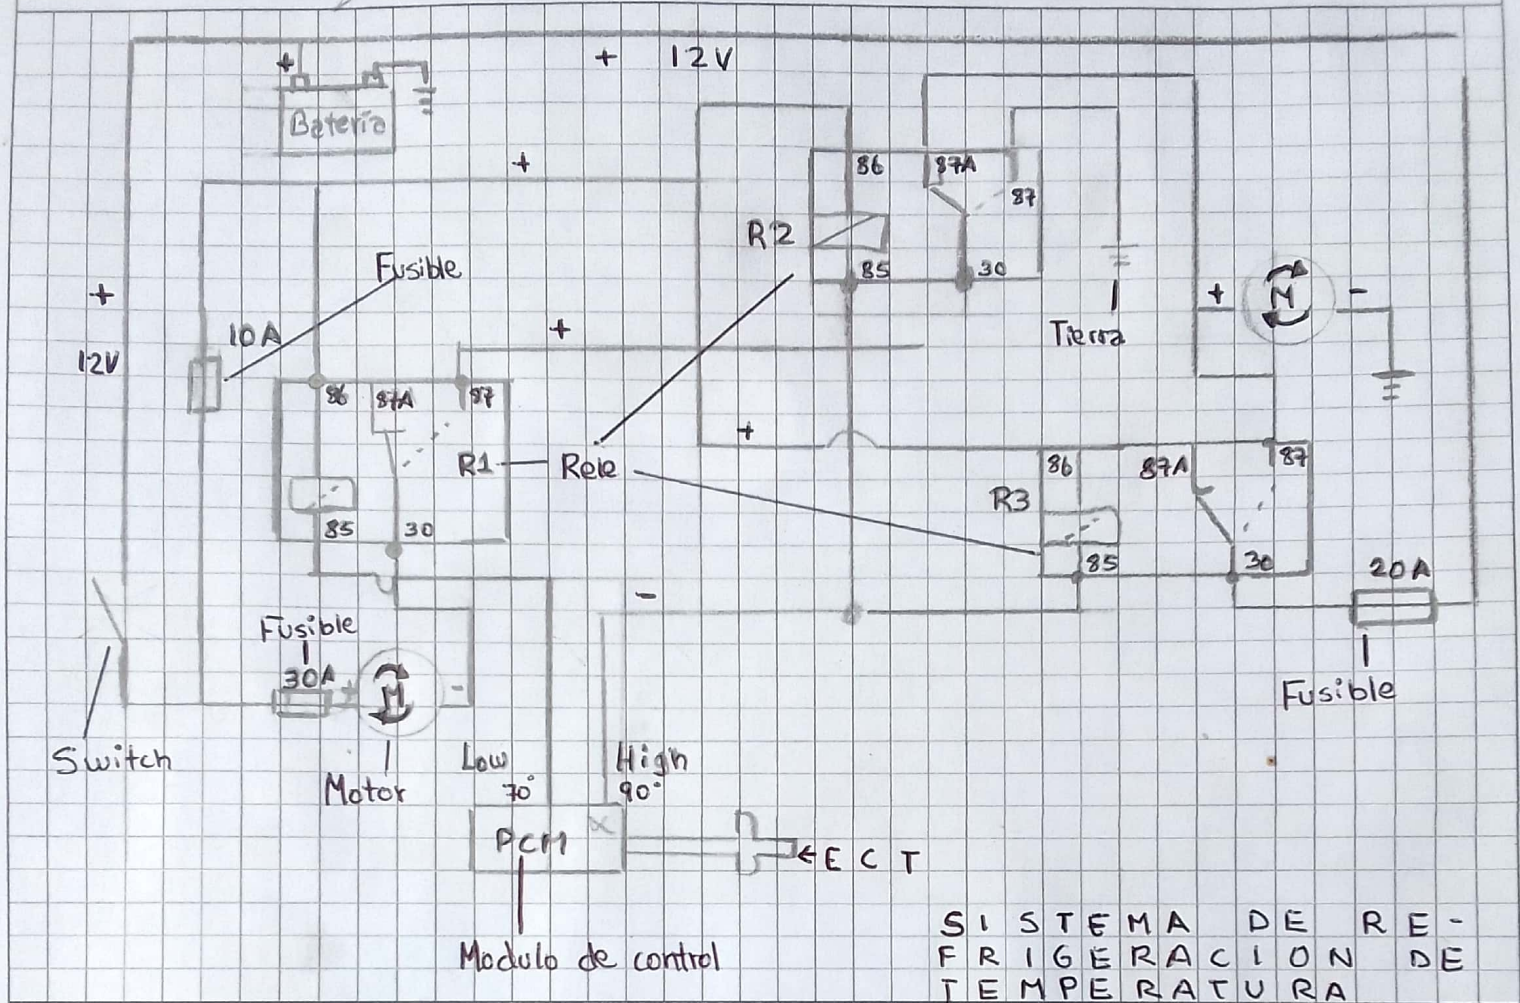 + 12V
+
Batería
+
86 87A
87
R2
85 30
Fusible
+
12V
10A
+
Tierra
+ M -
86 87A 87
R1 Rele
85 30
+
86 87A 87
R3
85 30
20A
Fusible
-
Fusible
30A
+ M -
Switch
Motor
Low
70°
High
90°
PCM
ECT
Modulo de control
SISTEMA DE RE-
FRIGERACION DE
TEMPERATURA